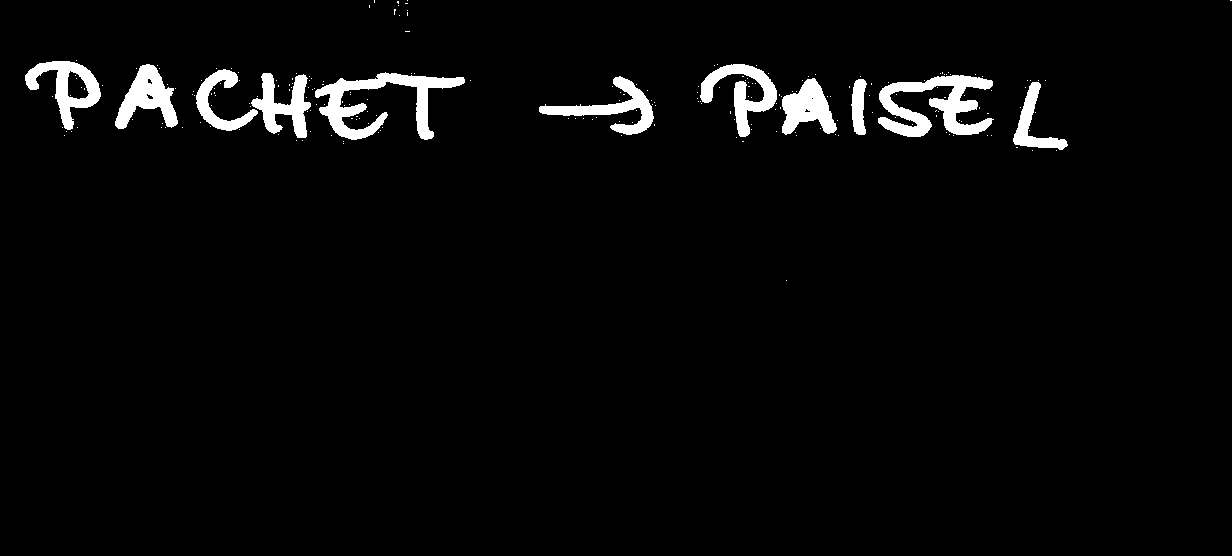 PACHET → PAISEL